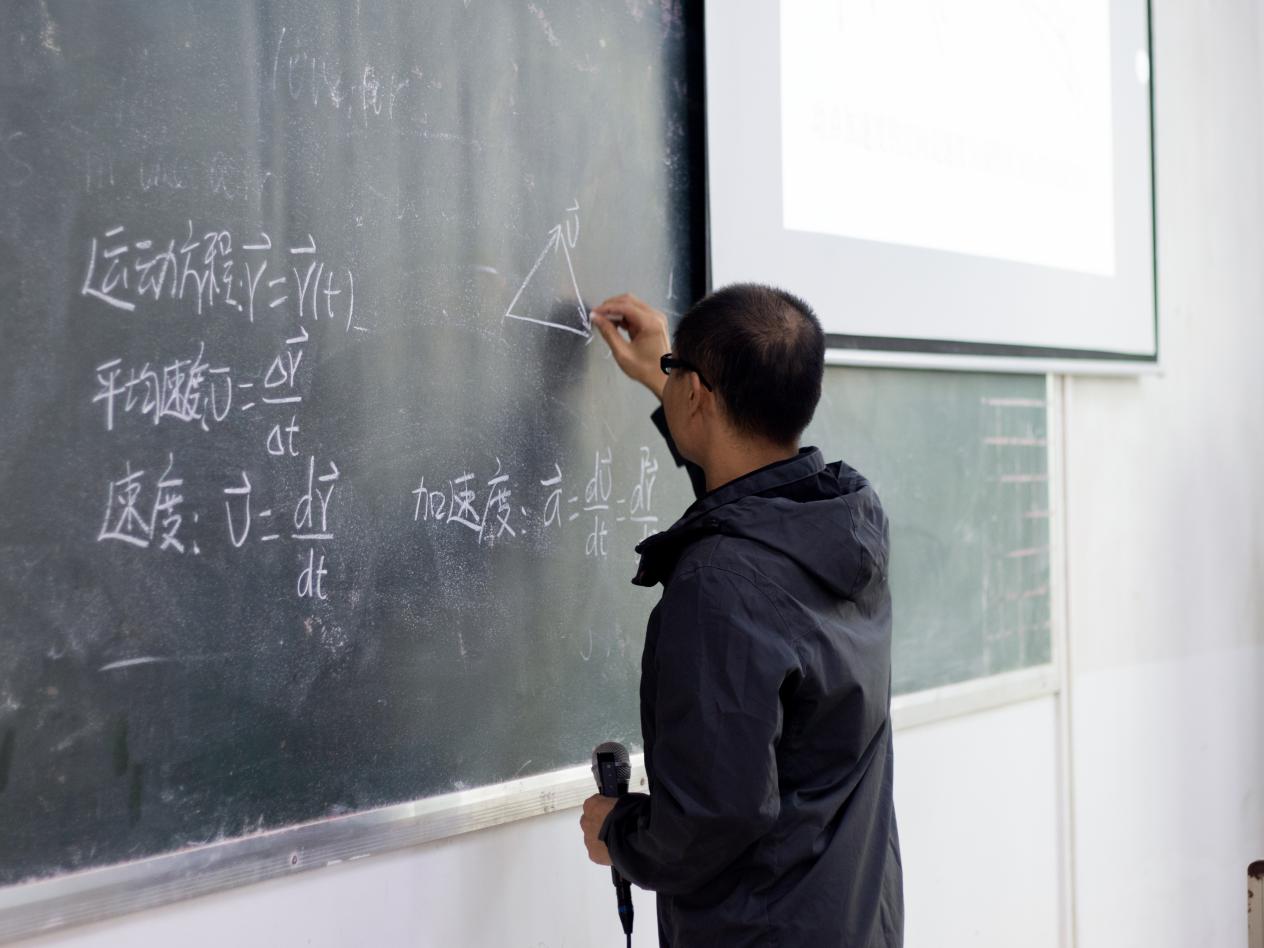 运动方程: r⃗ = r⃗(t)
平均速度: υ⃗ = Δr⃗/Δt
速度: υ⃗ = dr⃗/dt
加速度: a⃗ = dυ⃗/dt =
υ⃗